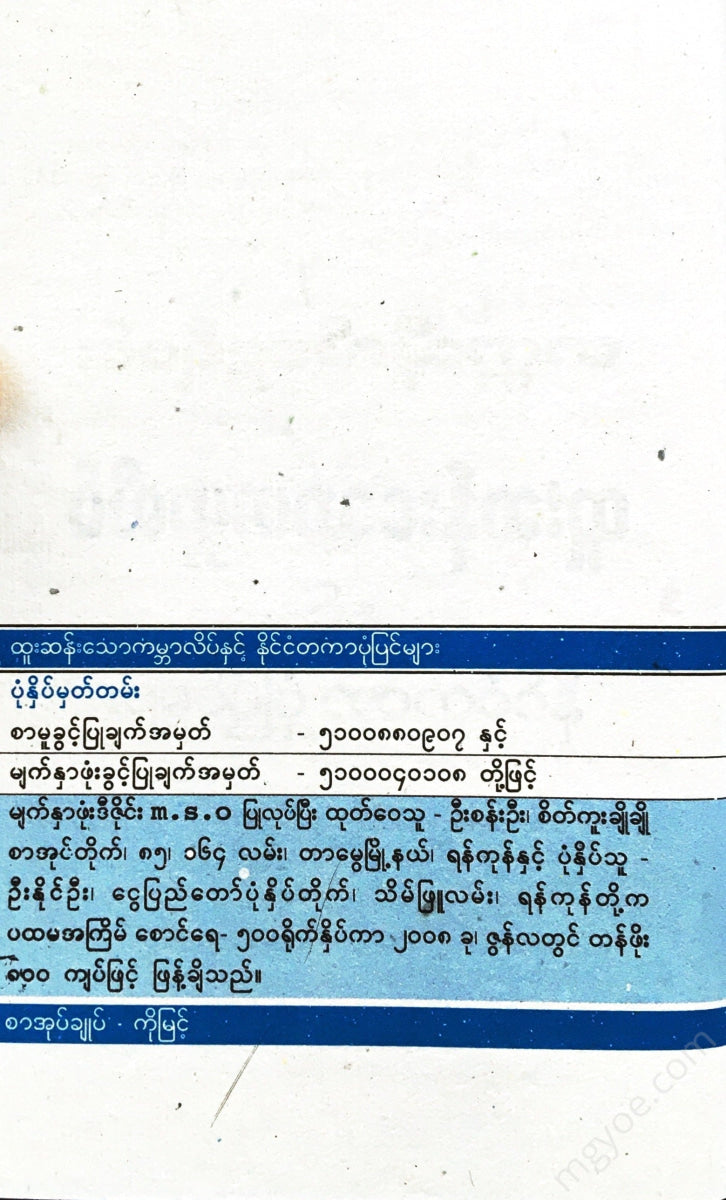 ထူးဆန်းသောကမ္ဘာလိပ်နှင့် နိုင်ငံတကာပုံပြင်များ
ပုံနှိပ်မှတ်တမ်း
စာမူခွင့်ပြုချက်အမှတ် - ၅၁၀၀၈၈၀၉၀၇ နှင့်
မျက်နှာဖုံးခွင့်ပြုချက်အမှတ် - ၅၁၀၀၀၄၀၁၀၈ တို့ဖြင့်
မျက်နှာဖုံးဒီဇိုင်း m.s.o ပြုလုပ်ပြီး ထုတ်ဝေသူ - ဦးစန်းဦး၊ စိတ်ကူးချိုချို
စာအုပ်တိုက်၊ ၈၅၊ ၁၆၄ လမ်း၊ တာမွေမြို့နယ်၊ ရန်ကုန်နှင့် ပုံနှိပ်သူ -
ဦးနိုင်ဦး၊ ငွေပြည်တော်ပုံနှိပ်တိုက်၊ သိမ်ဖြူလမ်း၊ ရန်ကုန်တို့က
ပထမအကြိမ် စောင်ရေ- ၅၀၀ရိုက်နှိပ်ကာ ၂၀၀၈ ခု၊ ဇွန်လတွင် တန်ဖိုး
၈၀၀ ကျပ်ဖြင့် ဖြန့်ချိသည်။
စာအုပ်ချုပ် - ကိုမြင့်
mgyoe.com